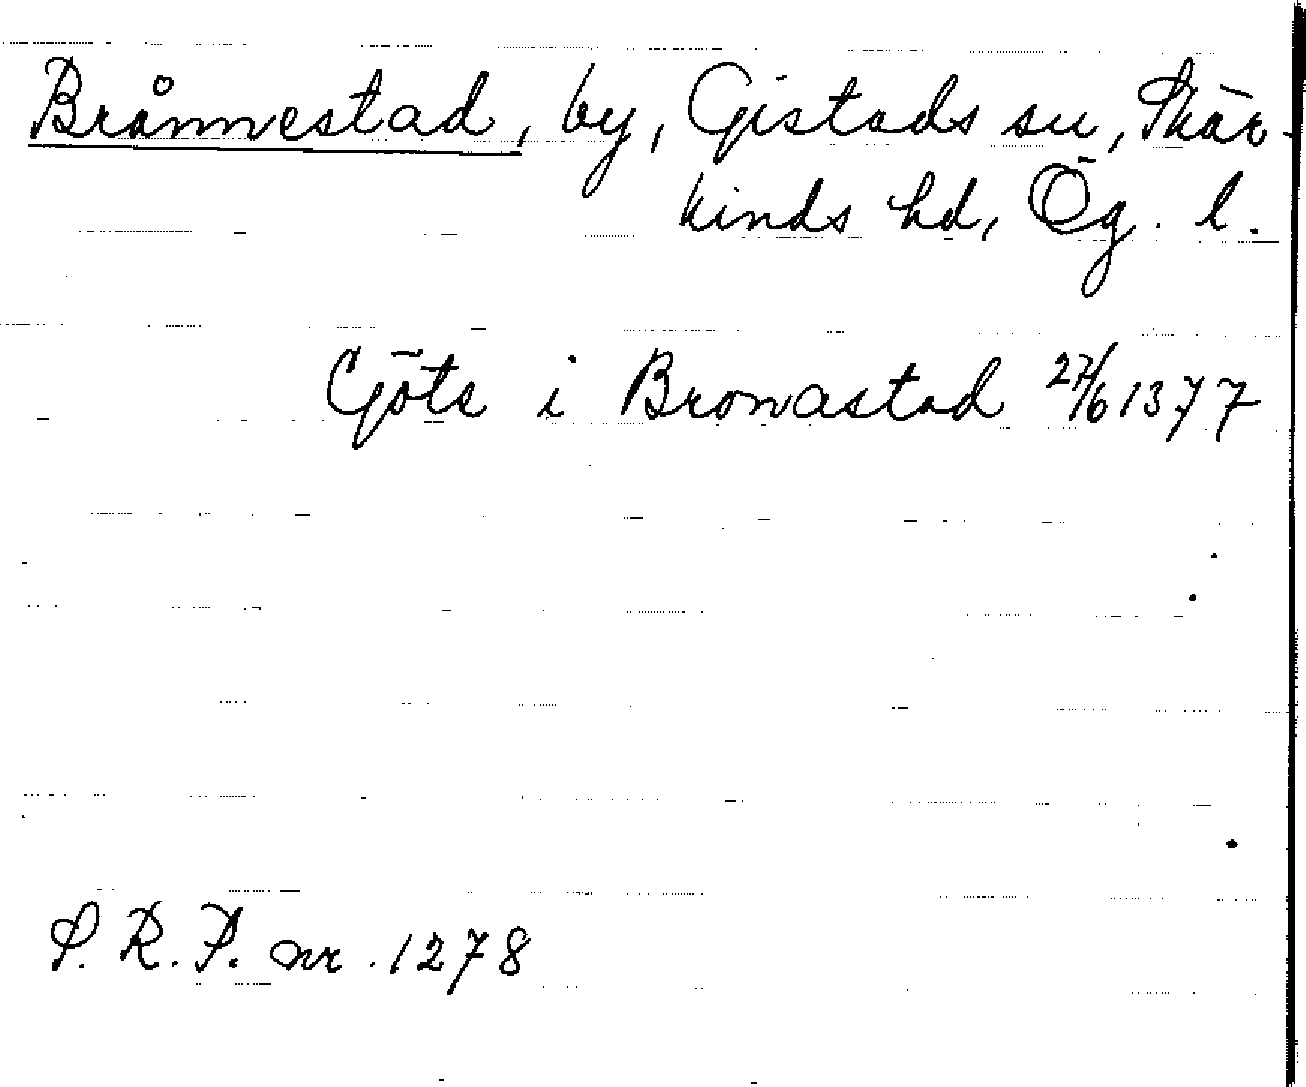 Brånnestad, by, Gistads sn, Skär-
kinds hd, Ög. l.
Göts i Bronastad 27/6 1377
S. R. P. nr. 1278